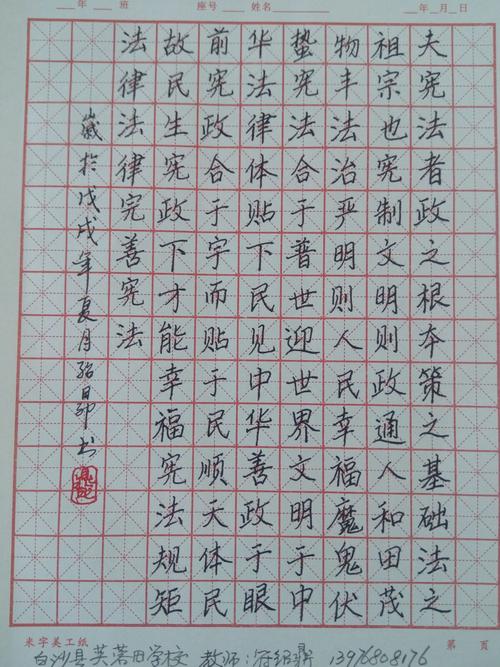 年 班 座号 姓名 年 月 日
夫宪法者政之根本策之基础法之
祖宗也宪制文明则政通人和田茂
物丰法治严明则人民幸福魔鬼伏
蛰宪法合于普世迎世界文明于中
华法律体贴下民见中华善政于眼
前宪政合于宇而贴于民顺天体民
故民生宪政下才能幸福宪法规矩
法律法律完善宪法
歲於戊戌年夏月绍昂书
米字美工纸 第 页
白沙县芙蓉田学校 教师:符绍 13976808176